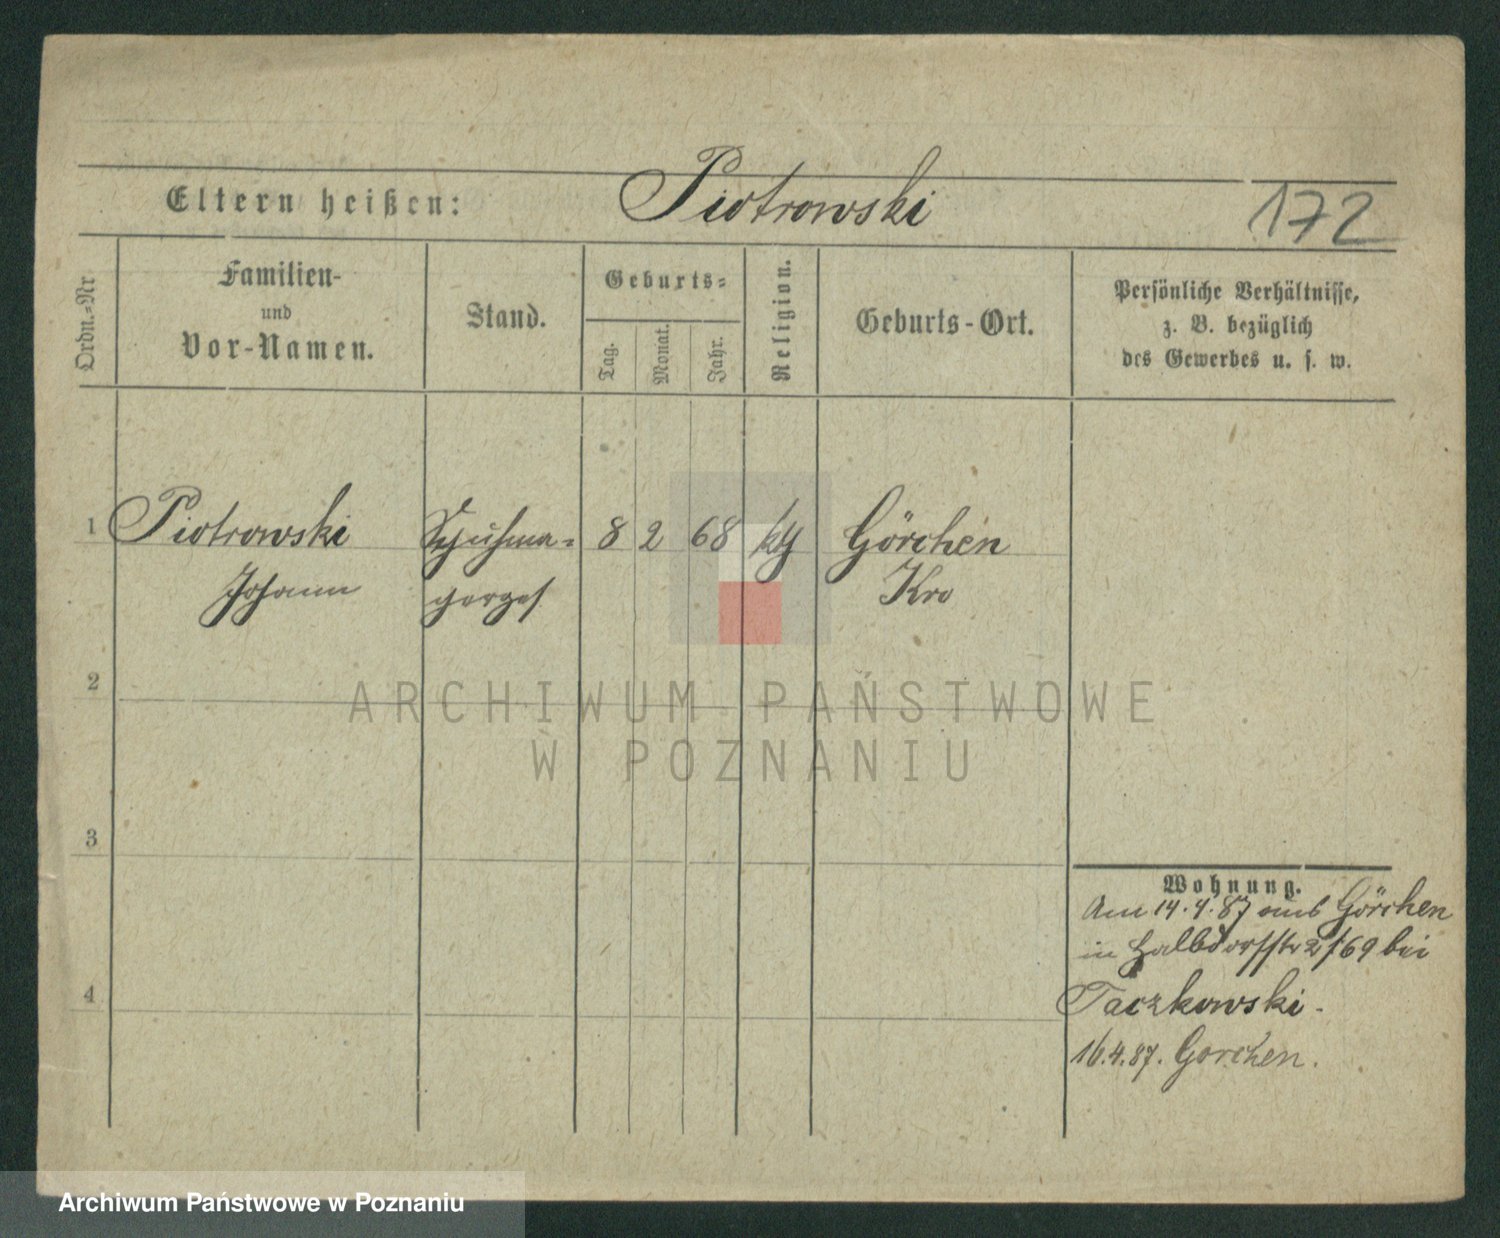 Eltern heißen: Piotrowski
172
Ordn.-Nr
Familien-
und
Vor-Namen.
Stand.
Geburts-
Tag.
Monat.
Jahr.
Religion.
Geburts-Ort.
Persönliche Verhältnisse,
z. B. bezüglich
des Gewerbes u. s. w.
1 Piotrowski Schuhma- 8 2 68 kg Görchen
Johann Kro
2
3
4
ARCHIWUM PAŃSTWOWE
W POZNANIU
Wohnung.
Am 14.4.87 aus Görchen
in Halbdorfstr 2/69 bei
Taczkowski.
16.4.87. Gorchen.
Archiwum Państwowe w Poznaniu